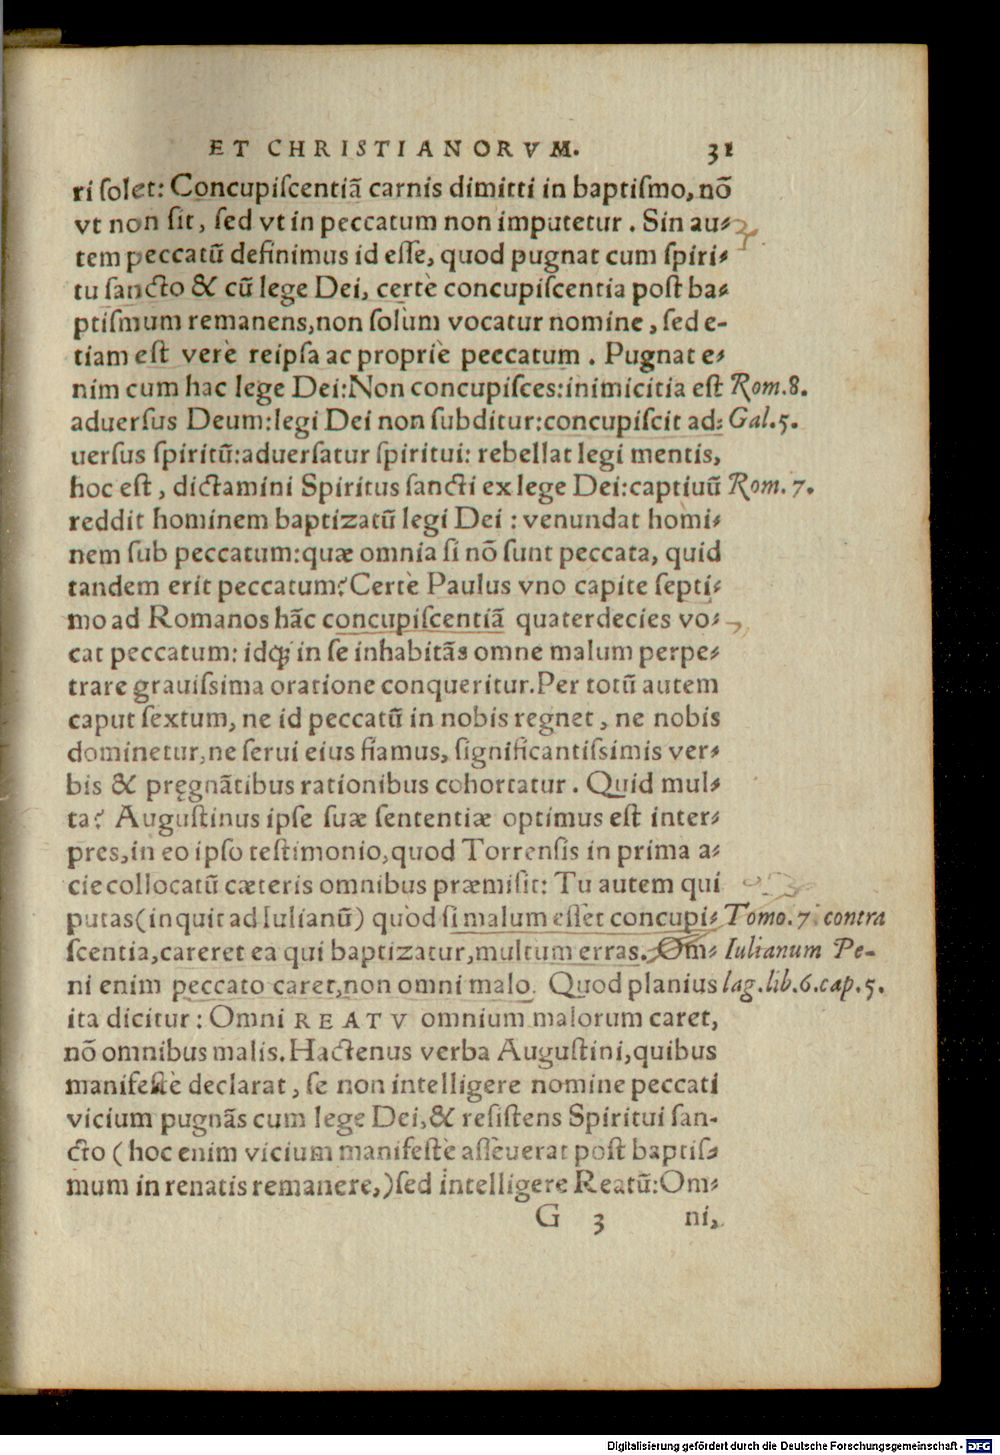 ET CHRISTIANORVM. 31
ri ſolet: Concupiſcentiā carnis dimitti in baptiſmo, nō
vt non ſit, ſed vt in peccatum non imputetur. Sin au-
tem peccatū definimus id eſſe, quod pugnat cum ſpiri-
tu ſancto & cū lege Dei, certè concupiſcentia poſt ba-
ptiſmum remanens, non ſolùm vocatur nomine, ſed e-
tiam eſt verè reipſa ac propriè peccatum. Pugnat e-
nim cum hac lege Dei: Non concupiſces: inimicitia eſt Rom. 8.
aduerſus Deum: legi Dei non ſubditur: concupiſcit ad- Gal. 5.
uerſus ſpiritū: aduerſatur ſpiritui: rebellat legi mentis,
hoc eſt, dictamini Spiritus ſancti ex lege Dei: captiuū Rom. 7.
reddit hominem baptizatū legi Dei: venundat homi-
nem ſub peccatum: quæ omnia ſi nō ſunt peccata, quid
tandem erit peccatum? Certè Paulus vno capite ſepti-
mo ad Romanos hāc concupiſcentiā quaterdecies vo-
cat peccatum: idꝙ in ſe inhabitās omne malum perpe-
trare grauiſsima oratione conqueritur. Per totū autem
caput ſextum, ne id peccatū in nobis regnet, ne nobis
dominetur, ne ſerui eius fiamus, ſignificantiſsimis ver-
bis & pręgnātibus rationibus cohortatur. Quid mul-
ta? Auguſtinus ipſe ſuæ ſententiæ optimus eſt inter-
pres, in eo ipſo teſtimonio, quod Torrenſis in prima a-
cie collocatū cæteris omnibus præmiſit: Tu autem qui
putas (inquit ad Iulianū) quòd ſi malum eſſet concupi- Tomo. 7. contra
ſcentia, careret ea qui baptizatur, multum erras. Om- Iulianum Pe-
ni enim peccato caret, non omni malo. Quod planius lag. lib. 6. cap. 5.
ita dicitur: Omni REATV omnium malorum caret,
nō omnibus malis. Hactenus verba Auguſtini, quibus
manifeſtè declarat, ſe non intelligere nomine peccati
vicium pugnās cum lege Dei, & reſiſtens Spiritui ſan-
cto (hoc enim vicium manifeſtè aſſeuerat poſt baptiſ-
mum in renatis remanere,) ſed intelligere Reatū: Om-
G 3 ni,
Digitalisierung gefördert durch die Deutsche Forschungsgemeinschaft - DFG